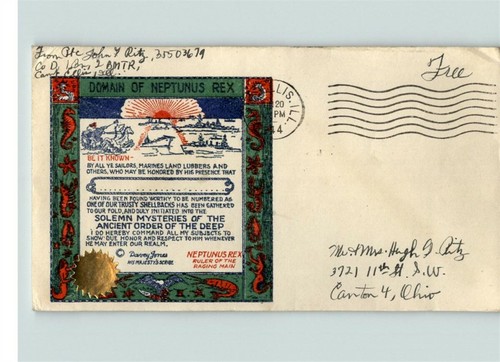 From Pvt. John G Ritz, 35503679
Co D, 1 Bn, 2 BMTR,
Camp Ellis, Ill.
Free
LLIS, ILL.
20
PM
44
DOMAIN OF NEPTUNUS REX
BE IT KNOWN-
BY ALL YE SAILORS, MARINES LAND LUBBERS AND
OTHERS, WHO MAY BE HONORED BY HIS PRESENCE THAT
HAVING BEEN FOUND WORTHY TO BE NUMBERED AS
ONE OF OUR TRUSTY SHELLBACKS HAS BEEN GATHERED
TO OUR FOLD, AND DULY INITIATED INTO THE
SOLEMN MYSTERIES OF THE
ANCIENT ORDER OF THE DEEP
I DO HEREBY COMMAND ALL MY SUBJECTS TO
SHOW DUE HONOR AND RESPECT TO HIM WHENEVER
HE MAY ENTER OUR REALM.
© Davey Jones
HIS MAJESTY'S SCRIBE
NEPTUNUS REX
RULER OF THE
RAGING MAIN
Mr. & Mrs. Hugh G. Ritz
3721 11th St. S.W.
Canton 4, Ohio